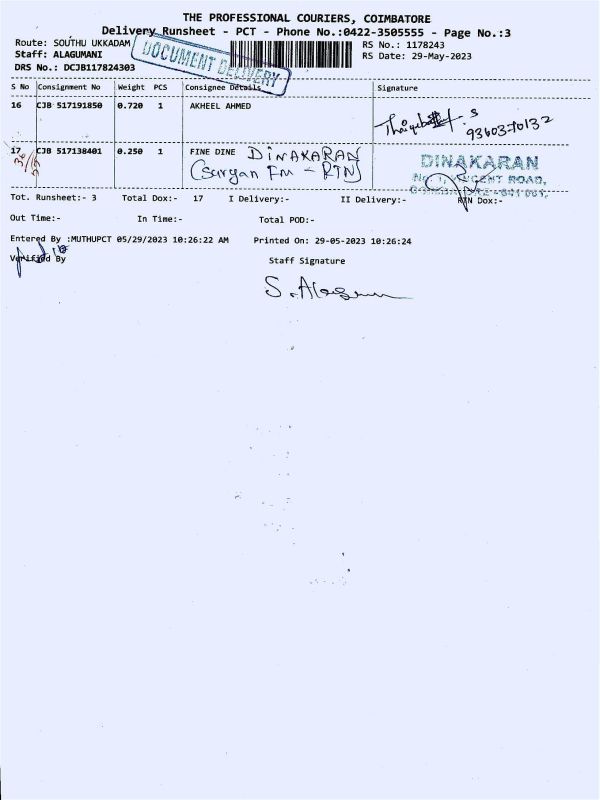 THE PROFESSIONAL COURIERS, COIMBATORE
Delivery Runsheet - PCT - Phone No.:0422-3505555 - Page No.:3
Route: SOUTHU UKKADAM
RS No.: 1178243
Staff: ALAGUMANI
RS Date: 29-May-2023
DRS No.: DCJB117824303
DOCUMENT DELIVERY
S No Consignment No Weight PCS Consignee Details Signature
16 CJB 517191850 0.720 1 AKHEEL AHMED
S
9360370132
17 CJB 517138401 0.250 1 FINE DINE DINAKARAN
(Suryan Fm - RTN)
DINAKARAN
ROAD,
Tot. Runsheet:- 3 Total Dox:- 17 I Delivery:- II Delivery:- RTN Dox:-
Out Time:- In Time:- Total POD:-
Entered By :MUTHUPCT 05/29/2023 10:26:22 AM Printed On: 29-05-2023 10:26:24
Verified By Staff Signature